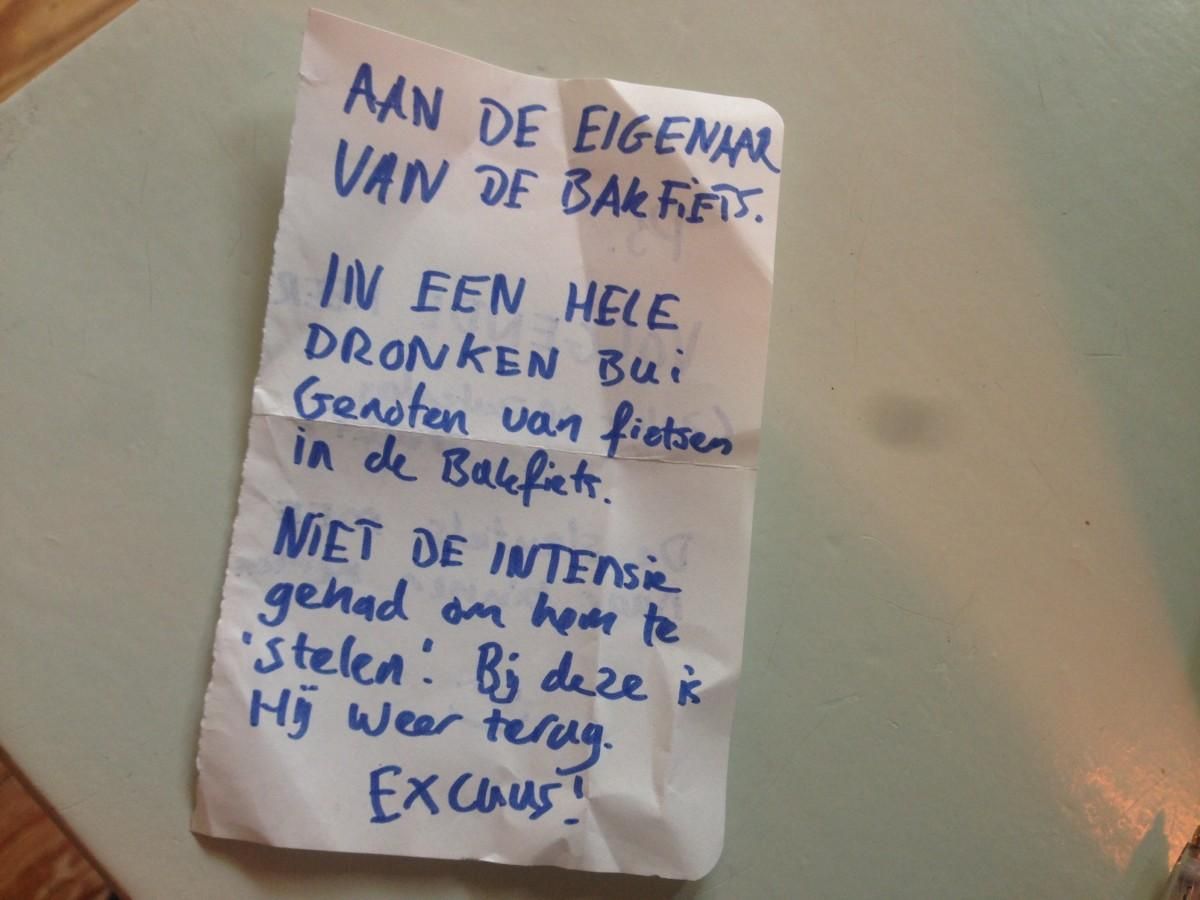 AAN DE EIGENAAR
VAN DE BAKFIETS.
IN EEN HELE
DRONKEN BUI
Genoten van fietsen
in de Bakfiets.
NIET DE INTENSIE
gehad om hem te
'stelen'. Bij deze is
Hij weer terug.
EXCUUS!
PS.